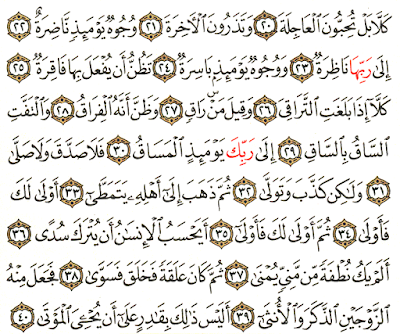 كَلَّا بَلْ تُحِبُّونَ ٱلْعَاجِلَةَ ٢٠ وَتَذَرُونَ ٱلْـَٔاخِرَةَ ٢١ وُجُوهٌ يَوْمَئِذٍ نَّاضِرَةٌ ٢٢
إِلَىٰ رَبِّهَا نَاظِرَةٌ ٢٣ وَوُجُوهٌ يَوْمَئِذٍۭ بَاسِرَةٌ ٢٤ تَظُنُّ أَن يُفْعَلَ بِهَا فَاقِرَةٌ ٢٥
كَلَّآ إِذَا بَلَغَتِ ٱلتَّرَاقِىَ ٢٦ وَقِيلَ مَنْ ۜ رَاقٍ ٢٧ وَظَنَّ أَنَّهُ ٱلْفِرَاقُ ٢٨ وَٱلْتَفَّتِ
ٱلسَّاقُ بِٱلسَّاقِ ٢٩ إِلَىٰ رَبِّكَ يَوْمَئِذٍ ٱلْمَسَاقُ ٣٠ فَلَا صَدَّقَ وَلَا صَلَّىٰ
٣١ وَلَٰكِن كَذَّبَ وَتَوَلَّىٰ ٣٢ ثُمَّ ذَهَبَ إِلَىٰٓ أَهْلِهِۦ يَتَمَطَّىٰٓ ٣٣ أَوْلَىٰ لَكَ
فَأَوْلَىٰ ٣٤ ثُمَّ أَوْلَىٰ لَكَ فَأَوْلَىٰٓ ٣٥ أَيَحْسَبُ ٱلْإِنسَٰنُ أَن يُتْرَكَ سُدًى ٣٦
أَلَمْ يَكُ نُطْفَةً مِّن مَّنِىٍّ يُمْنَىٰ ٣٧ ثُمَّ كَانَ عَلَقَةً فَخَلَقَ فَسَوَّىٰ ٣٨ فَجَعَلَ مِنْهُ
ٱلزَّوْجَيْنِ ٱلذَّكَرَ وَٱلْأُنثَىٰٓ ٣٩ أَلَيْسَ ذَٰلِكَ بِقَٰدِرٍ عَلَىٰٓ أَن يُحْـِۧىَ ٱلْمَوْتَىٰ ٤٠